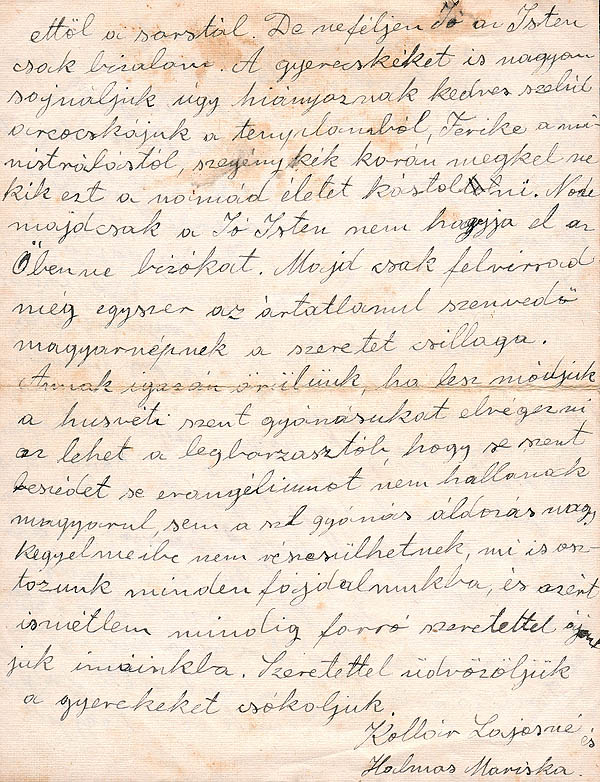 ettöl a sorstól. De neféljen Jó az Isten
csak bizalom. A gyerecskéket is nagyon
sojnáljuk úgy hiányoznak kedves szelid
arcocskájuk a templomból, Terike a mi-
nistrálástól, szegénykék korán megkel ne
kik ezt a nomád életet kóstolni. Node
majdcsak a Jó Isten nem hagyja el az
Őbenne bizókat. Majd csak felvirrad
még egyszer az ártatlanul szenvedő
magyarnépnek a szeretet csillaga.
Annak igazán örülünk, ha lesz módjuk
a husvéti szent gyónásukat elvégezni
az lehet a legborzasztóh, hogy se szent
beszédet se evangéliumot nem hallanak
magyarul, sem a szt gyónás áldozás nagy
kegyelmeibe nem részesülhetnek, mi is osz-
tozunk minden fójdalmukba, és azért
ismétlem mindig forró szeretettel
juk imáinkba. Szeretettel üdvözöljük
a gyerekeket csókoljuk.
Kollár Lajosné és
Halmos Mariska.